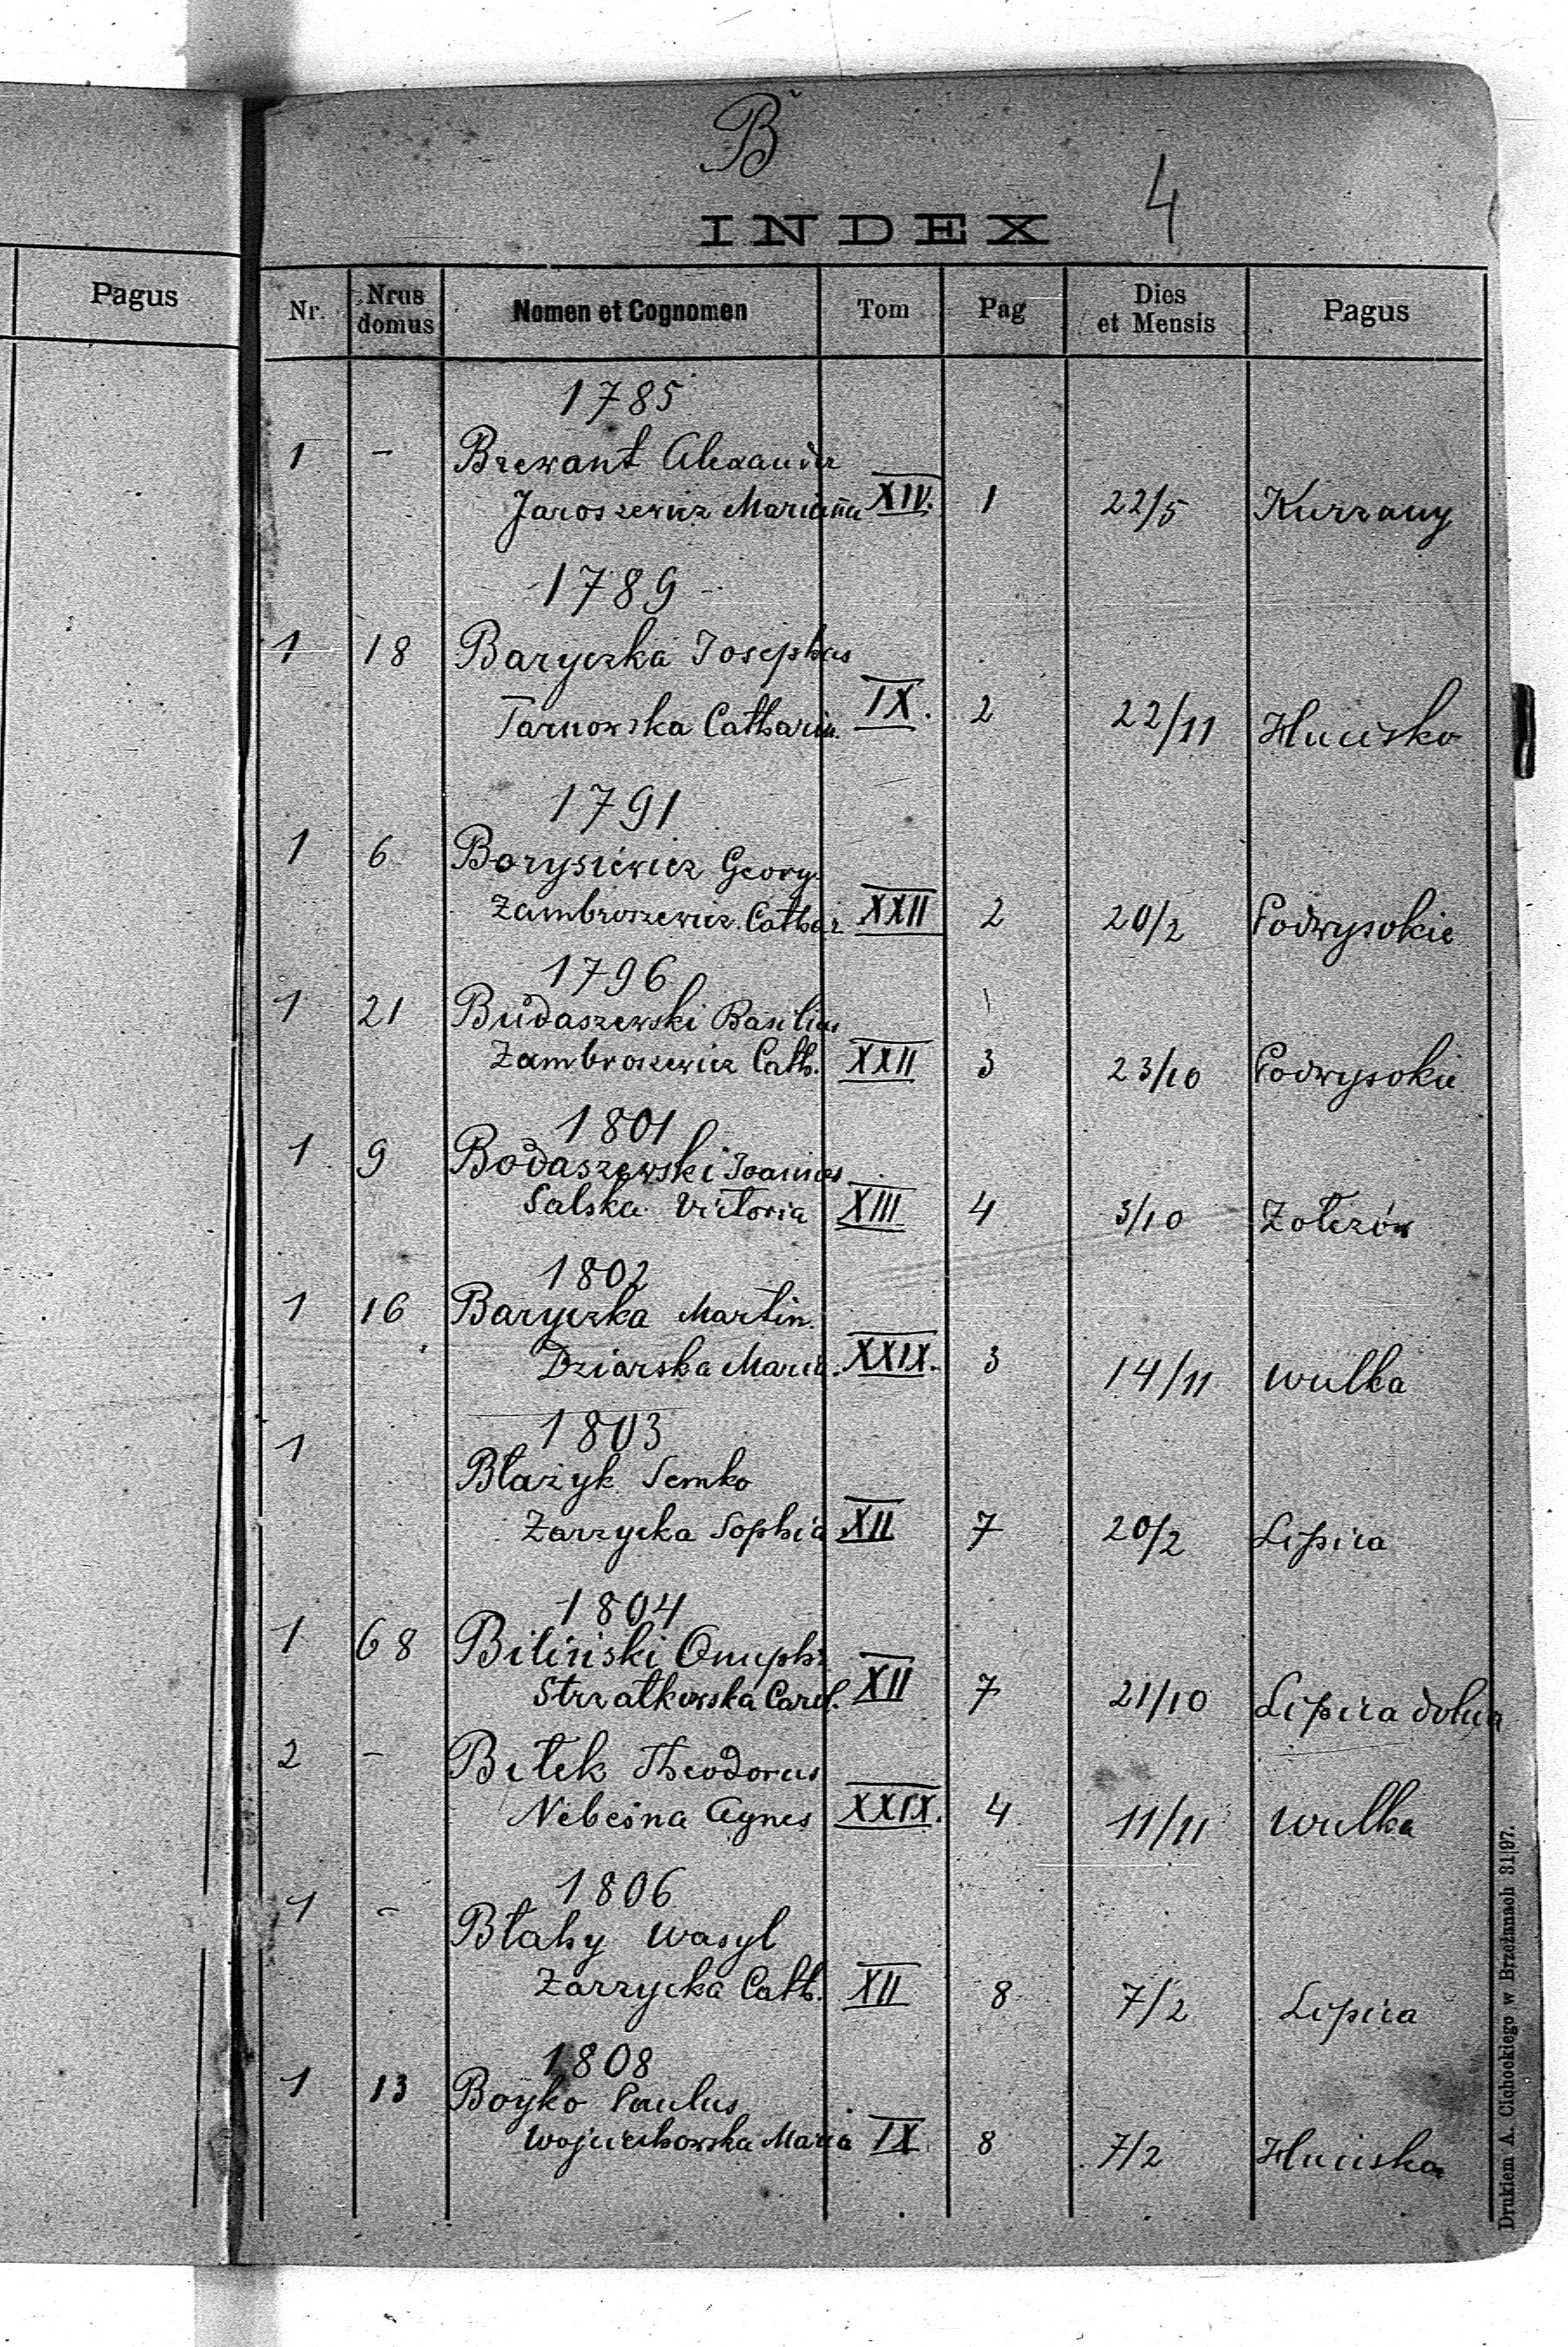 Pagus
B
4
INDEX
Nr. Nrus domus Nomen et Cognomen Tom Pag Dies et Mensis Pagus
1785
1 - Brewant Alexander
Jaroszewicz Marianna XIV. 1 22/5 Kurzany
1789
1 18 Baryczka Josephus
Tarnowska Catharin. IX. 2 22/11 Hucisko
1791
1 6 Borysiewicz Georg.
Zambroszewicz Cathar XXII 2 20/2 Podwysokie
1796
1 21 Budaszewski Basilius
Zambroszewicz Cath. XXII 3 23/10 Podwysokie
1801
1 9 Bodaszewski Joannes
Salska Victoria XIII 4 3/10 Żołczów
1802
1 16 Baryczka Martin.
Dziarska Maria. XXIX. 3 14/11 Wulka
1803
1 Błażyk Semko
Zarzycka Sophia XII 7 20/2 Lipica
1804
1 68 Biliński Onuphr
Strzałkowska Carol. XII 7 21/10 Lipica dolna
2 - Bełek Theodorus
Niebeśna Agnes XXIX. 4 11/11 Wulka
1806
1 - Błahy Wasyl
Zarzycka Cath. XII 8 7/2 Lipica
1808
1 13 Boyko Paulus
Wojciechowska Maria IX 8 7/2 Huciska
Drukiem A. Cichockiego w Brzeżanach 31|97.